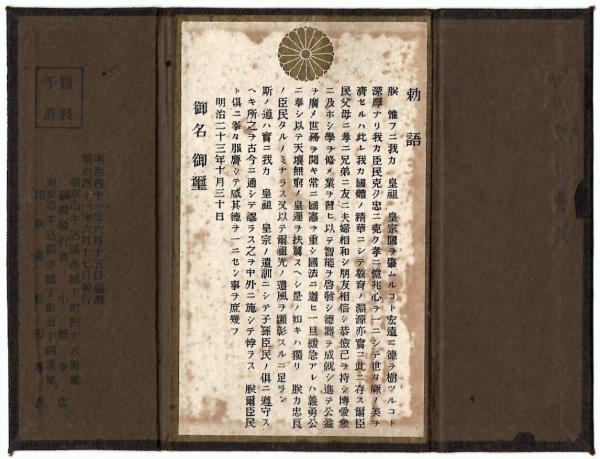 勅語
朕惟フニ我カ 皇祖 皇宗國ヲ肇ムルコト宏遠ニ德ヲ樹ツルコト
深厚ナリ我カ臣民克ク忠ニ克ク孝ニ億兆心ヲ一ニシテ世々厥ノ美ヲ
濟セルハ此レ我カ國體ノ精華ニシテ敎育ノ淵源亦實ニ此ニ存ス爾臣
民父母ニ孝ニ兄弟ニ友ニ夫婦相和シ朋友相信シ恭儉己ヲ持シ博愛衆
ニ及ホシ學ヲ修メ業ヲ習ヒ以テ智能ヲ啓發シ德器ヲ成就シ進テ公益
ヲ廣メ世務ヲ開キ常ニ國憲ヲ重シ國法ニ遵ヒ一旦緩急アレハ義勇公
ニ奉シ以テ天壤無窮ノ 皇運ヲ扶翼スヘシ是ノ如キハ獨リ 朕カ忠良
ノ臣民タルノミナラス又以テ爾祖先ノ遺風ヲ顯彰スルニ足ラン
斯ノ道ハ實ニ我カ 皇祖 皇宗ノ遺訓ニシテ子孫臣民ノ俱ニ遵守ス
ヘキ所之ヲ古今ニ通シテ謬ラス之ヲ中外ニ施シテ悖ラス 朕爾臣民
ト俱ニ拳々服膺シテ咸其德ヲ一ニセン事ヲ庶幾フ
明治二十三年十月三十日
御名 御璽
複製
不許
明治四十 年六月十五日印刷
明治四十 年六月十七日發行